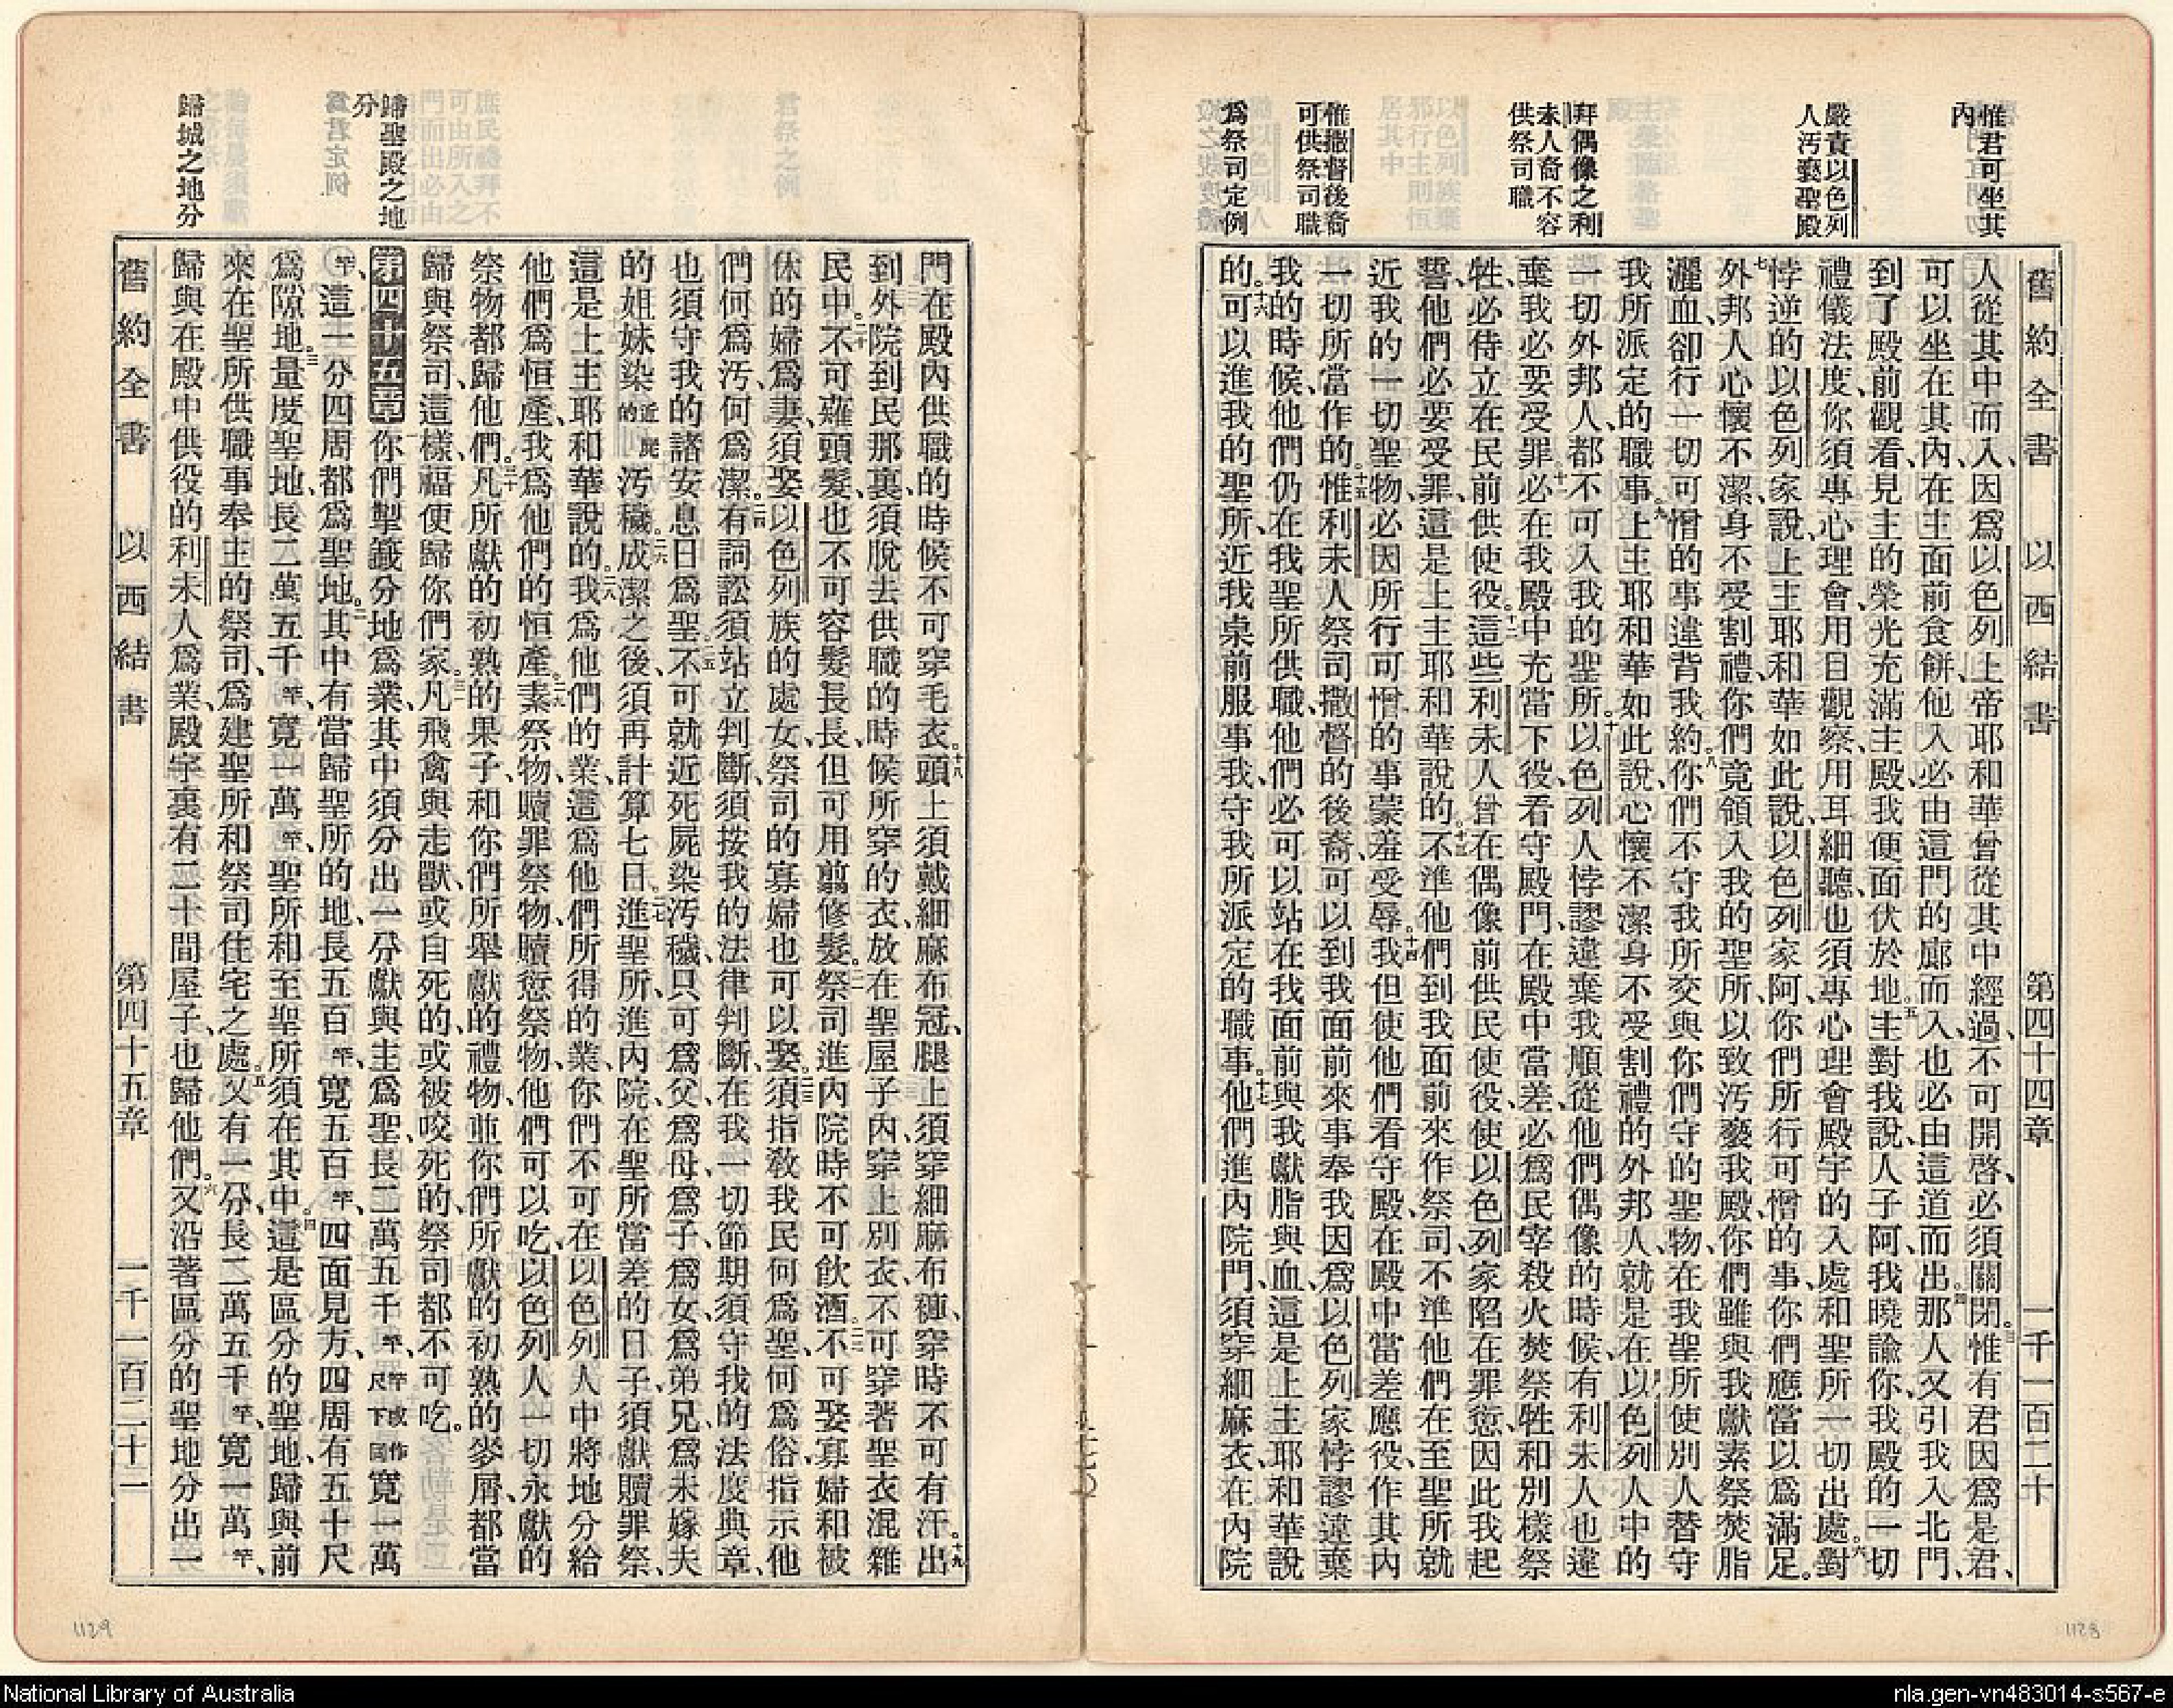 惟君可坐其
內
嚴責以色列
人汚褻聖殿
拜偶像之利
未人裔不容
供祭司職
惟撒督後裔
可供祭司職
爲祭司定例
舊約全書 以西結書 第四十四章 一千一百二十
人從其中而入、因爲以色列上帝耶和華曾從其中經過、不可開啓、必須關閉。三惟有君因爲是君、
可以坐在其內、在主面前食餅、他入必由這門的廊而入、也必由這道而出。四那人又引我入北門、
到了殿前觀看、見主的榮光充滿主殿、我便面伏於地。五主對我說、人子阿、我曉諭你、我殿的一切
禮儀法度、你須專心理會、用目觀察、用耳細聽、也須專心理會殿宇的入處和聖所一切出處。六對
悖逆的以色列家說、上主耶和華如此說、以色列家阿、你們所行可憎的事、你們應當以爲滿足。
七外邦人心懷不潔、身不受割禮、你們竟領入我的聖所、以致汚褻我殿、你們雖與我獻素祭焚脂
灑血、卻行一切可憎的事、違背我約。八你們不守我所交與你們守的聖物、在我聖所使別人替守
我所派定的職事。九上主耶和華如此說、心懷不潔身不受割禮的外邦人、就是在以色列人中的
一切外邦人、都不可入我的聖所。十以色列人悖謬違棄我、順從他們偶像的時候、有利未人也違
棄我、必要受罪。十一必在我殿中充當下役、看守殿門、在殿中當差、必爲民宰殺火焚祭牲和別樣祭
牲、必侍立在民前供使役。十二這些利未人曾在偶像前供民使役、使以色列家陷在罪愆、因此我起
誓、他們必要受罪、這是上主耶和華說的。十三不準他們到我面前來作祭司、不準他們在至聖所就
近我的一切聖物、必因所行可憎的事蒙羞受辱。十四我但使他們看守殿、在殿中當差應役、作其內
一切所當作的。十五惟利未人祭司撒督的後裔、可以到我面前來事奉我、因爲以色列家悖謬違棄
我的時候、他們仍在我聖所供職、他們必可以站在我面前、與我獻脂與血、這是上主耶和華說
的。十六可以進我的聖所、近我桌前服事我、守我所派定的職事。十七他們進內院門、須穿細麻衣、在內院
1128
歸聖殿之地
分
歸城之地分
門在殿內供職的時候不可穿毛衣。十八頭上須戴細麻布冠、腿上須穿細麻布褲、穿時不可有汗。十九出
到外院到民那裏、須脫去供職的時候所穿的衣、放在聖屋子內、穿上別衣、不可穿著聖衣混雜
民中。二十不可薙頭髮、也不可容髮長長、但可用翦修髮。二一祭司進內院時不可飲酒。二二不可娶寡婦和被
休的婦爲妻、須娶以色列族的處女、祭司的寡婦也可以娶。二三須指敎我民何爲聖何爲俗、指示他
們何爲汚、何爲潔。二四有詞訟須站立判斷、須按我的法律判斷、在我一切節期、須守我的法度典章、
也須守我的諸安息日爲聖。二五不可就近死屍染汚穢、只可爲父、爲母、爲子、爲女、爲弟兄、爲未嫁夫
的姐妹、染近屍的汚穢。二六成潔之後、須再計算七日。二七進聖所、進內院、在聖所當差的日子、須獻贖罪祭、
這是上主耶和華說的。二八我爲他們的業、這爲他們所得的業、你們不可在以色列人中將地分給
他們爲恒產、我爲他們的恒產。二九素祭物、贖罪祭物、贖愆祭物、他們可以吃、以色列人一切永獻的
祭物都歸他們。三十凡所獻的初熟的果子、和你們所舉獻的禮物、並你們所獻的初熟的麥屑、都當
歸與祭司、這樣福便歸你們家。三一凡飛禽與走獸、或自死的、或被咬死的、祭司都不可吃。
第四十五章 一你們掣籤分地爲業、其中須分出一分獻與主爲聖、長二萬五千竿、竿或作尺下同寬一萬
竿、這一分四周都爲聖地。二其中有當歸聖所的地、長五百竿、寬五百竿、四面見方、四周有五十尺
爲隙地。三量度聖地、長二萬五千竿、寬一萬竿、聖所和至聖所須在其中。四這是區分的聖地、歸與前
來在聖所供職事奉主的祭司、爲建聖所和祭司住宅之處。五又有一分、長二萬五千竿、寬一萬竿、
歸與在殿中供役的利未人爲業、殿宇裏有二十間屋子、也歸他們。六又沿著區分的聖地分出一
舊約全書 以西結書 第四十五章 一千一百二十二
1129
National Library of Australia
nla.gen-vn483014-s567-e